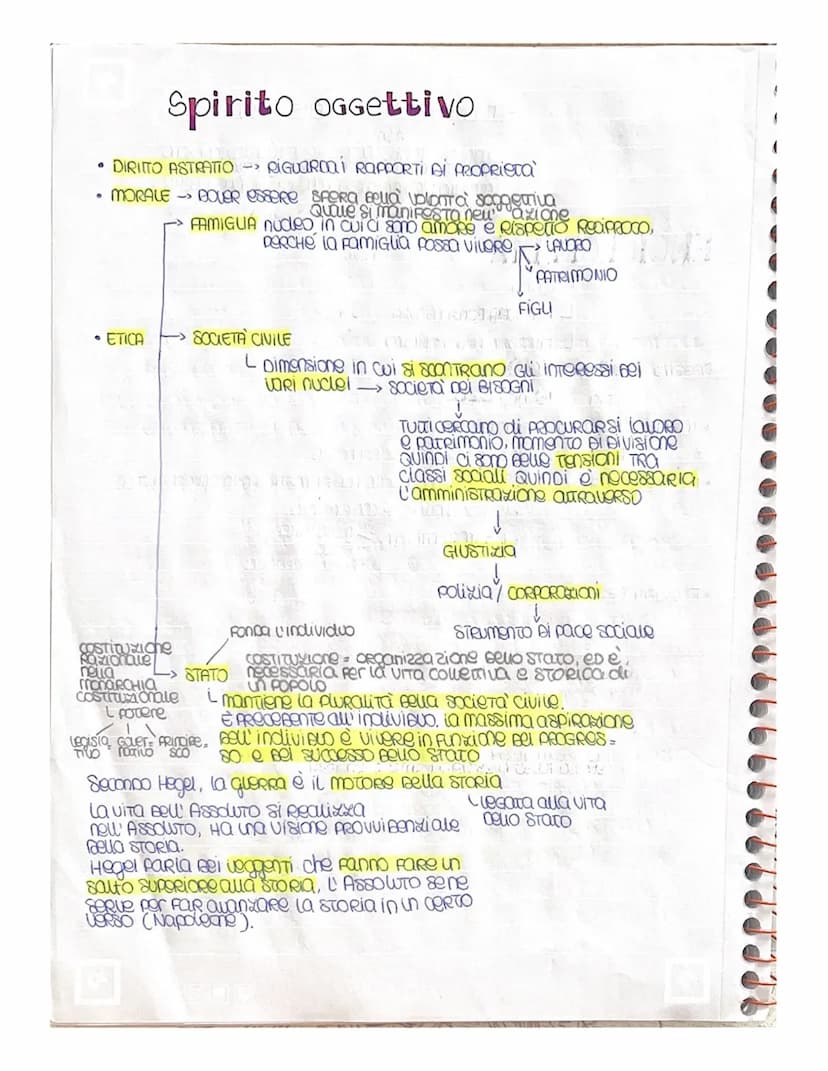 Spirito oggettivo
• DIRITTO ASTRATTO → RIGUARDA I RAPPORTI DI PROPRIETA'
• MORALE → DOVER ESSERE SFERA DELLA VOLONTÀ SOGGETTIVA
QUALE SI MANIFESTA NELL' AZIONE
→ FAMIGLIA nucleo in cui ci sono AMORE E RISPETTO RECIPROCO,
PERCHÉ LA FAMIGLIA POSSA VIVERE → LAVORO
PATRIMONIO
FIGLI
• ETICA → SOCIETA' CIVILE
DIMENSIONE IN CUI SI SCONTRANO GLI INTERESSI DEI
VARI NUCLEI → SOCIETÀ DEI BISOGNI
TUTTI CERCANO DI PROCURARSI LAVORO
E PATRIMONIO, MOMENTO DI DIVISIONE
QUINDI CI SONO DELLE TENSIONI TRA
CLASSI SOCIALI QUINDI È NECESSARIA
L'AMMINISTRAZIONE ATTRAVERSO
↓
GIUSTIZIA
↓
POLIZIA / CORPORAZIONI
↓
STRUMENTO DI PACE SOCIALE
FONDA L'INDIVIDUO
→ STATO
COSTITUZIONE = ORGANIZZAZIONE DELLO STATO, ED È
NECESSARIA PER LA VITA COLLETTIVA E STORICA DI
UN POPOLO
COSTITUZIONE
RAZIONALE
NELLA
MONARCHIA
COSTITUZIONALE
POTERE
LEGISLA= GOVER= PRINCIPE=
TIVO NATIVO SCO
MANTIENE LA PLURALITÀ DELLA SOCIETA' CIVILE.
È PRECEDENTE ALL' INDIVIDUO, LA MASSIMA ASPIRAZIONE
DELL' INDIVIDUO È VIVERE IN FUNZIONE DEL PROGRES=
SO E DEL SUCCESSO DELLO STATO
SECONDO HEGEL, LA GUERRA È IL MOTORE DELLA STORIA
LEGATA ALLA VITA
DELLO STATO
LA VITA DELL' ASSOLUTO SI REALIZZA
NELL' ASSOLUTO, HA UNA VISIONE PROVVIDENZIALE
DELLA STORIA.
HEGEL PARLA DEI VEGGENTI CHE FANNO FARE UN
SALTO SUPERIORE ALLA STORIA, L' ASSOLUTO SE NE
SERVE PER FAR AVANZARE LA STORIA IN UN CERTO
VERSO (NAPOLEONE).